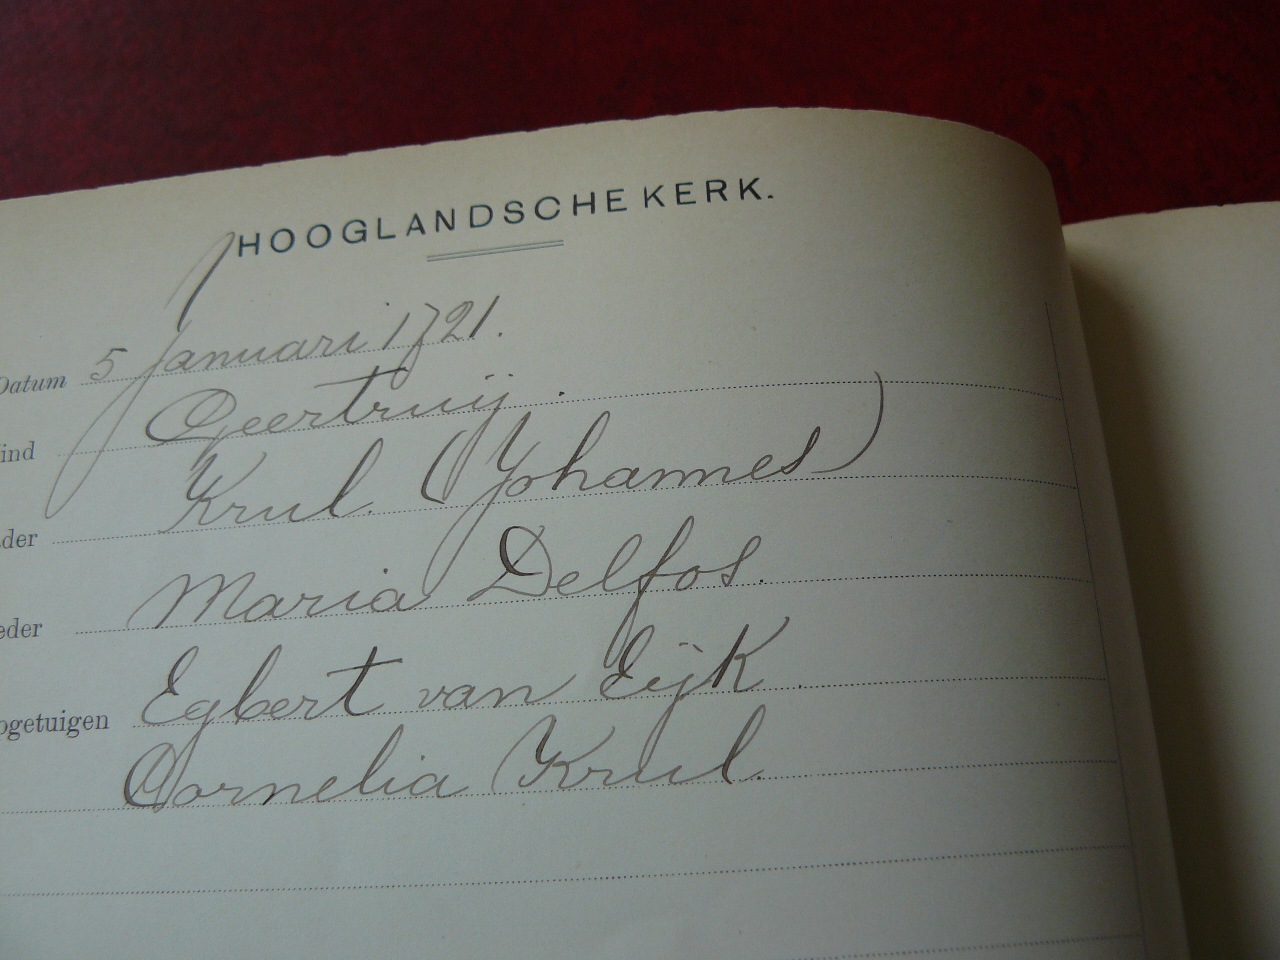 HOOGLANDSCHE KERK.
Datum 5 Januari 1721.
ind Geertruij.
der Krul. (Johannes)
eder Maria Delfos.
ogetuigen Egbert van Eijk.
Cornelia Krul.